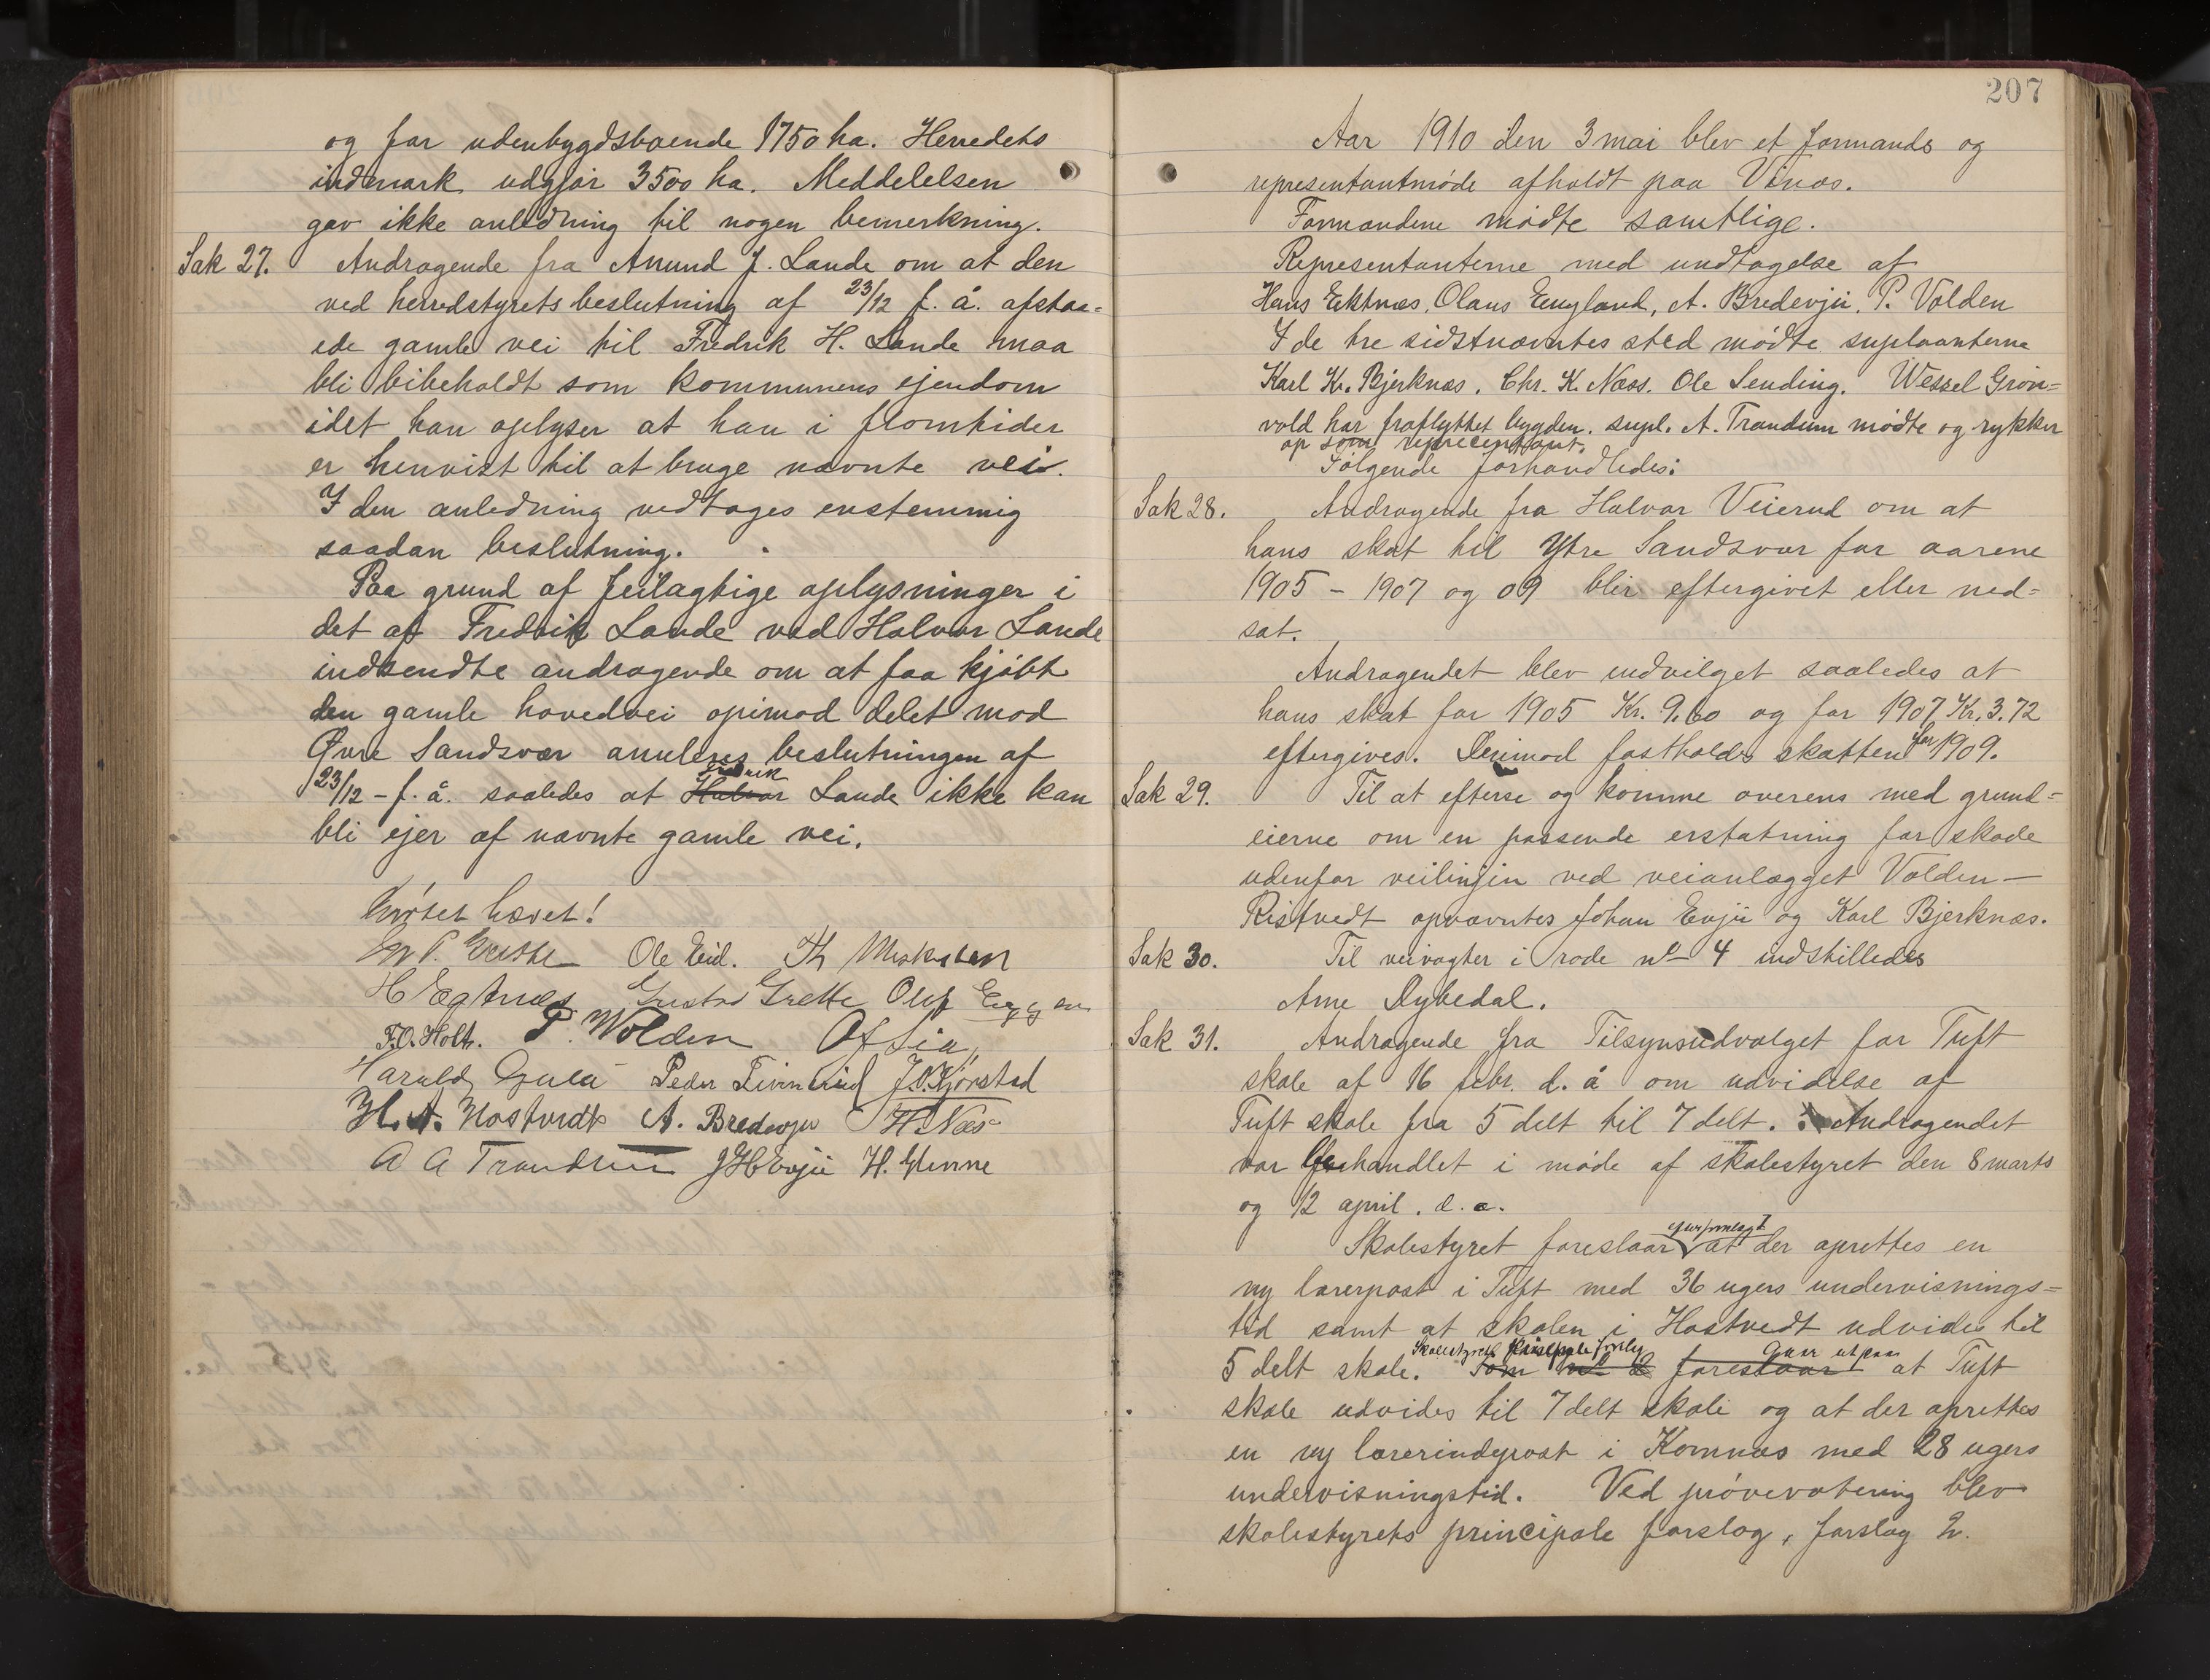 og for udenbygdsboende 1750 ha. Herredets
indmark udgjør 3500 ha. Meddelelsen
gav ikke anledning til nogen bemerkning.
Sak 27. Andragende fra Anund J. Lande om at den
ved herredstyrets beslutning af 23/12 f. å. afstaa-
ede gamle vei til Fredrik H. Lande maa
bli bibeholdt som kommunens ejendom
idet han oplyser at han i fromtider
er henvist til at bruge nævnte vei.
I den anledning vedtages enstemmig
saadan beslutning.
Paa grund af feilagtige oplysninger i
det af Fredrik Lande ved Halvor Lande
indsendte andragende om at faa kjøbt
den gamle hovedvei opimod delet mod
Øvre Sandsvær anuleres beslutningen af
23/12 - f. å. saaledes at Halvor Fredrik Lande ikke kan
bli ejer af nævnte gamle vei.
Mötet hævet!
Ole Eid. Th
H Egtnæs Gustav Grette Oluf
T.O. Holt. P. Wolden O f Lia
Harald Peder J.O. Kjørstad
H. A. Hostvedt A. Bredevju H Næs
A A Trandum J H Evju H.
207
Aar 1910 den 3 mai blev et formands og
representantmøde afholdt paa Vinæs.
Formændene mødte samtlige.
Representanterne med undtagelse af
Hans Ektnæs, Olaus Eugland, A. Bredevju, P. Volden
I de tre sidstnævntes sted mødte suplaanterne
Karl Kr. Bjerknæs, Chr. K. Næss. Ole Sending. Wessel Grøn-
vold har fraflyttet bygden. supl. A. Trandum mødte og rykker
op som representant.
Følgende forhandledes:
Sak 28. Andragende fra Halvor Veierud om at
hans skat til Ytre Sandsvær for aarene
1905 - 1907 og 09 blir eftergivet eller ned-
sat.
Andragendet blev indvilget saaledes at
hans skat for 1905 Kr. 9.60 og for 1907 Kr. 3.72
eftergives. Derimod fastholdes skatten for 1909.
Sak 29. Til at efterse og komme overens med grund-
eierne om en passende erstatning for skade
udenfor veilinjin ved veianlægget Volden-
Ristvedt opnævntes Johan Evju og Karl Bjerknæs.
Sak 30. Til veivogter i rode no 4 indstilledes
Arne Dybedal.
Sak 31. Andragende fra Tilsynsudvalget for Tuft
skole af 16 febr. d. å om udvidelse af
Tuft skole fra 5 delt til 7 delt. Andragendet
var behandlet i møde af skolestyret den 8 marts
og 12 april. d. a.
Skolestyret foreslaar at der oprettes en
ny lærerpost i Tuft med 36 ugers undervisnings-
tid samt at skolen i Hostvedt udvides til
Skolestyrets principale forslag gaar ut paa
5 delt skole. Som no 2 foreslaar at Tuft
skole udvides til 7 delt skole og at der oprettes
en ny lærerindepost i Komnæs med 28 ugers
undervisningstid. Ved prøvevotering blev
skolestyrets principale forslag, forslag 2.